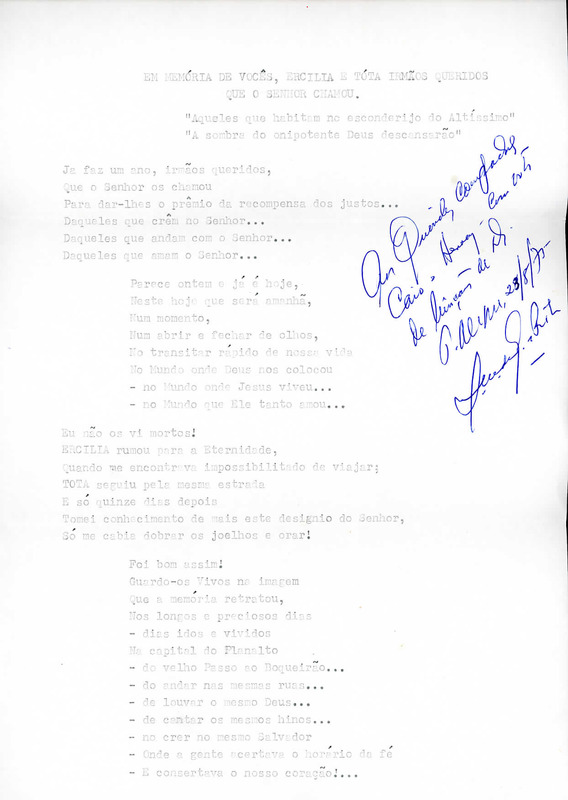 EM MEMÓRIA DE VOCÊS, ERCILIA E TÓTA IRMÃOS QUERIDOS
QUE O SENHOR CHAMOU.
"Aqueles que habitam no esconderijo do Altíssimo"
"A sombra do onipotente Deus descansarão"
Ja faz um ano, irmãos queridos,
Que o Senhor os chamou
Para dar-lhes o prêmio da recompensa dos justos...
Daqueles que crêm no Senhor...
Daqueles que andam com o Senhor...
Daqueles que amam o Senhor...
Parece ontem e já é hoje,
Neste hoje que será amanhã,
Num momento,
Num abrir e fechar de olhos,
No transitar rápido de nossa vida
No Mundo onde Deus nos colocou
- no Mundo onde Jesus viveu...
- no Mundo que Ele tanto amou...
Eu não os vi mortos!
ERCILIA rumou para a Eternidade,
Quando me encontrava impossibilitado de viajar;
TOTA seguiu pela mesma estrada
E só quinze dias depois
Tomei conhecimento de mais este designio do Senhor,
Só me cabia dobrar os joelhos e orar!
Foi bom assim!
Guardo-os Vivos na imagem
Que a memória retratou,
Nos longos e preciosos dias
- dias idos e vividos
Na capital do Planalto
- do velho Passo ao Boqueirão...
- do andar nas mesmas ruas...
- de louvar o mesmo Deus...
- de cantar os mesmos hinos...
- no crer no mesmo Salvador
- Onde a gente acertava o horário da fé
- E consertava o nosso coração!...
Aos Queridos
Caio e
de
23/8/75